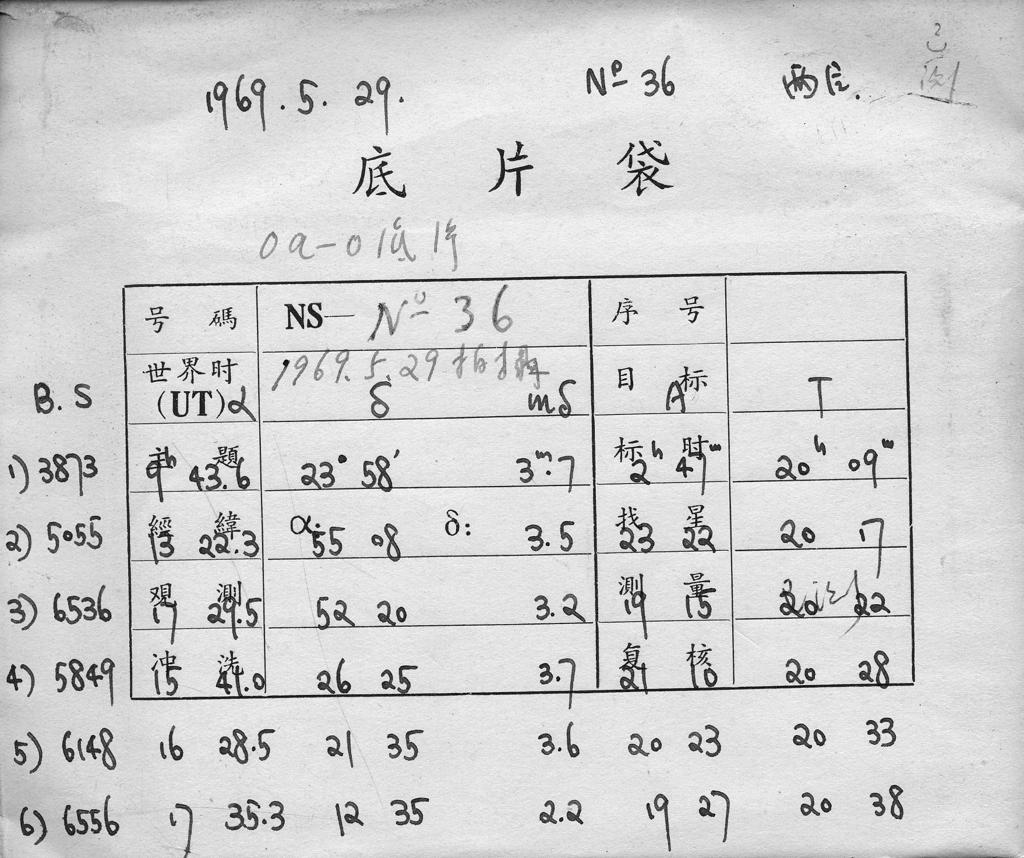 已
测
1969.5.29. Nº 36 两位.
底片袋
Oa-O 底片
号碼 NS— Nº 36 序号
世界时 1969.5.29 拍摄 目标
B.S (UT) α δ mδ A T
註題 标时
1) 3873 9ʰ 43.6 23° 58′ 3ᵐ.7 2ʰ 47ᵐ 20ʰ 09ᵐ
經緯 α: δ: 找星
2) 5055 13 22.3 55 08 3.5 23 22 20 17
观測 測量
3) 6536 17 29.5 52 20 3.2 19 15 20 22
沖洗 复核
4) 5849 15 41.0 26 25 3.7 21 10 20 28
5) 6148 16 28.5 21 35 3.6 20 23 20 33
6) 6556 17 35.3 12 35 2.2 19 27 20 38